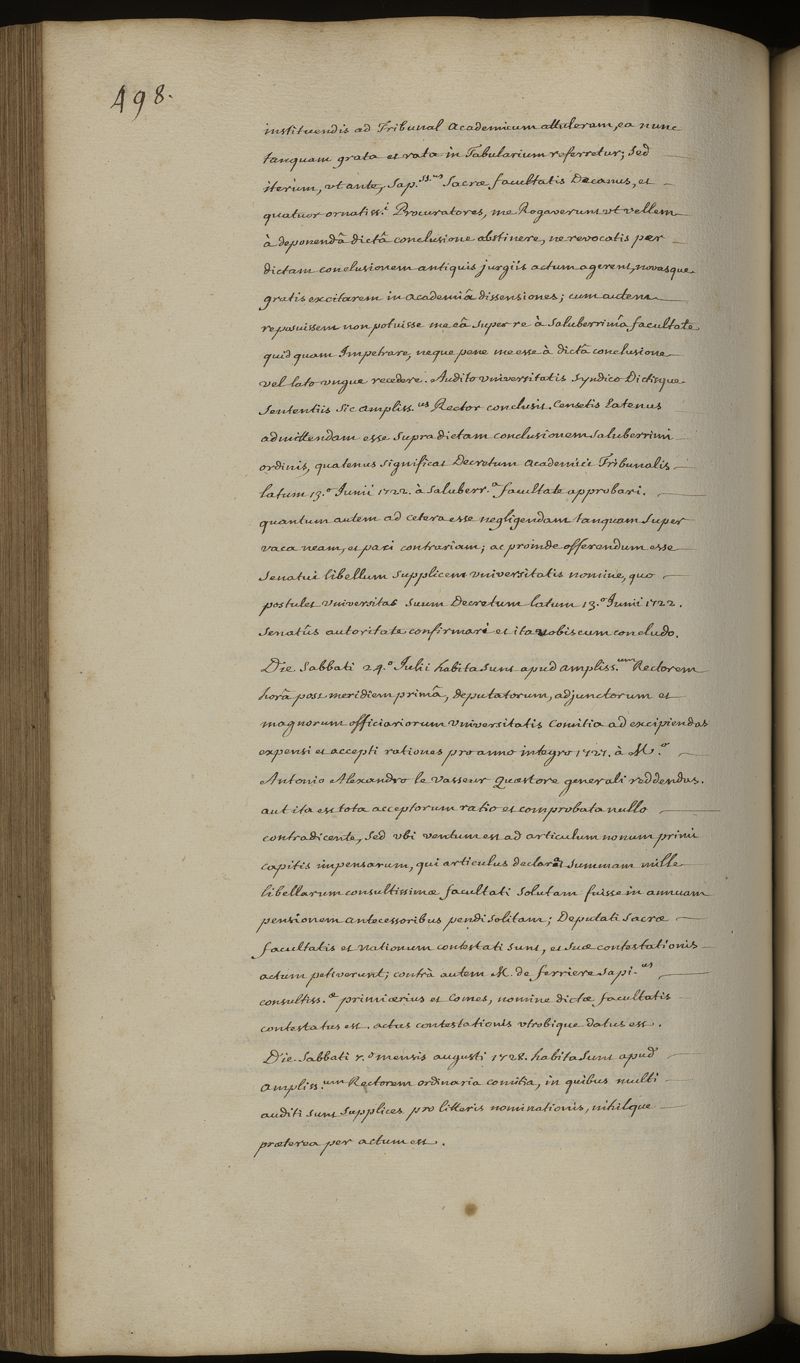 498.
instituendis ad Tribunal academicum attuleram, ea nunc
tanquam grata et rata in Tabularium referretur; sed
iterum, ut ante, Sap.ss.us Sacræ facultatis Decanus, et
quatuor ornatiss.i Procuratores, me Rogaverunt ut vellem
à deponendâ dictâ conclusione abstinere, ne revocatis per
dictam conclusionem antiquis jurgiis actum agerent, novasque
gratis excitarem in academiâ dissensiones; cum autem
reposuissem non potuisse me eâ super re à saluberrimâ facultate
quid quam Impetrare, neque pene me esse à dictâ conclusione
vel lato ungue recedere. Audito universitatis syndico Dictisque
Sententiis sic ampliss.us Rector conclusit. Censetis eatenus
admittendam esse supradictam conclusionem saluberrimi
ordinis, quatenus significat Decretum academici Tribunalis
latum 13.o Junii 1722. à saluberr.a facultate approbari.
quantum autem ad cetera esse negligendam tanquam super
vaca neam, et paci contrariam; ac proinde offerendum esse
Senatui libellum supplicem universitatis nomine, quo
postulet universitas suum Decretum latum 13.o Junii 1722.
Senatûs autoritate confirmari et ita vobiscum concludo.
Die Sabbati 24.o Julii habita sunt apud ampliss.um Rectorem
horâ post meridiem primâ, deputatorum, adjunctorum et
magnorum officiariorum universitatis Comitia ad excipiendas
expensi et accepti rationes pro anno integro 1727. à M.o
Antonio Alexandro le Vasseur Quæstore generali reddendas.
aut ita est tota acceptorum ratio et comprobata nullo
contradicente, sed ubi ventum est ad articulum nonum primi
capitis impensarum, qui articulus declarat summam mille
libellarum consultissimæ facultati solutam fuisse in annuam
pensionem antecessoribus pendi solitam; Deputati sacræ
facultatis et nationum contestati sunt, et suæ contestationis
actum petiverunt; contrà autem M. de ferriere sapi.us
consultiss.æ primicerius et Comes, nomine dictæ facultatis
contestatus est. actus contestationis utrobique datus est.
Die Sabbati 7.o mensis augusti 1728. habita sunt apud
ampliss.um Rectorem ordinaria comitia, in quibus multi
auditi sunt supplices pro litteris nominationis, nihilque
præterea per actum est.